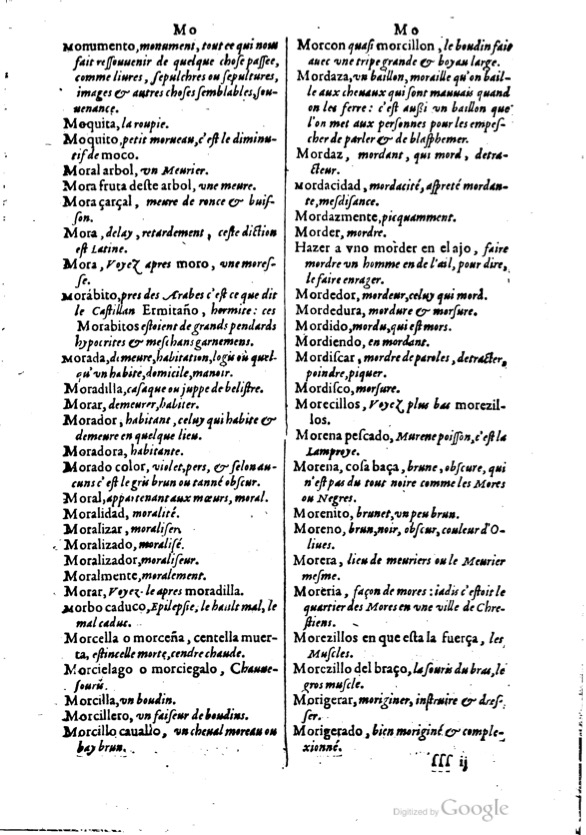 Mo
Monumento, monument, tout ce qui nous
fait reſſouuenir de quelque choſe paſſee,
comme liures, ſepulchres ou ſepultures,
images & autres choſes ſemblables, ſou-
uenance.
Moquita, la roupie.
Moquito, petit morueau, c'eſt le diminu-
tif de moco.
Moral arbol, vn Meurier.
Mora fruta deſte arbol, vne meure.
Mora çarçal, meure de ronce & buiſ-
ſon.
Mora, delay, retardement, ceſte diction
eſt Latine.
Mora, Voyez apres moro, vne moreſ-
ſe.
Morábito, pres des Arabes c'eſt ce que dit
le Caſtillan Ermitaño, hermite: ces
Morabitos eſtoient de grands pendards
hypocrites & meſchans garnemens.
Morada, demeure, habitation, logis où quel-
qu'vn habite, domicile, manoir.
Moradilla, caſaque ou juppe de beliſtre.
Morar, demeurer, habiter.
Morador, habitant, celuy qui habite &
demeure en quelque lieu.
Moradora, habitante.
Morado color, violet, pers, & ſelon au-
cuns c'eſt le gris brun ou tanné obſcur.
Moral, appartenant aux mœurs, moral.
Moralidad, moralité.
Moralizar, moraliſer.
Moralizado, moraliſé.
Moralizador, moraliſeur.
Moralmente, moralement.
Morar, Voyez-le apres moradilla.
Morbo caduco, Epilepſie, le hault mal, le
mal caduc.
Morcella o morceña, centella muer-
ta, eſtincelle morte, cendre chaude.
Morcielago o morciegalo, Chauue-
ſouris.
Morcilla, vn boudin.
Morcillero, vn faiſeur de boudins.
Morcillo cauallo, vn cheual moreau ou
bay brun.
Mo
Morcon quaſi morcillon, le boudin fait
auec vne tripe grande & boyau large.
Mordaza, vn baillon, moraille qu'on bail-
le aux cheuaux qui ſont mauuais quand
on les ferre: c'eſt auſſi vn baillon que
l'on met aux perſonnes pour les empeſ-
cher de parler & de blaſphemer.
Mordaz, mordant, qui mord, detra-
cteur.
Mordacidad, mordacité, aſpreté mordan-
te, meſdiſance.
Mordazmente, picquamment.
Morder, mordre.
Hazer a vno morder en el ajo, faire
mordre vn homme en de l'ail, pour dire,
le faire enrager.
Mordedor, mordeur, celuy qui mord.
Mordedura, mordure & morſure.
Mordido, mordu, qui eſt mors.
Mordiendo, en mordant.
Mordiſcar, mordre de paroles, detracter,
poindre, piquer.
Mordiſco, morſure.
Morecillos, Voyez plus bas morezil-
los.
Morena peſcado, Murene poiſſon, c'eſt la
Lamproye.
Morena, coſa baça, brune, obſcure, qui
n'eſt pas du tout noire comme les Mores
ou Negres.
Morenito, brunet, vn peu brun.
Moreno, brun, noir, obſcur, couleur d'O-
liues.
Morera, lieu de meuriers ou le Meurier
meſme.
Moreria, façon de mores: iadis c'eſtoit le
quartier des Mores en vne ville de Chre-
ſtiens.
Morezillos en que eſta la fuerça, les
Muſcles.
Morezillo del braço, la ſouris du bras, le
gros muſcle.
Morigerar, moriginer, inſtruire & dreſ-
ſer.
Morigerado, bien moriginé & comple-
xionné.
ſſſ ij
Digitized by Google